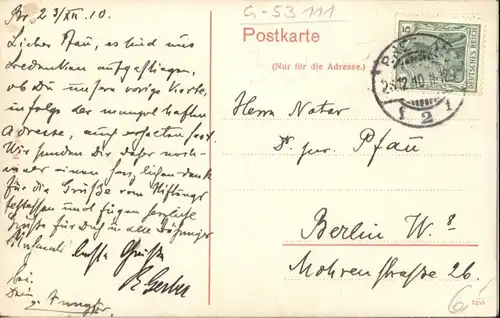 Br. 23/XII. 10.
Lieber Pfau, es sind uns
Gedanken aufgestiegen,
ob Du unsere vorige Karte,
infolge der mangelhaften
Adresse, auch erhalten hast.
Wir senden Dir daher noch-
mal einen herzlichen Dank
für die Grüße vom Stiftungs
feste und fügen herzliche
Grüße für Dich in alle
beste Grüße
R. Gerber
G-53 111
Postkarte
(Nur für die Adresse.)
5
DEUTSCHES REICH
23.12.10
1 2 1
Herrn Notar
Dr. jur. Pfau
Berlin W. 8
Mohrenstraße 26.